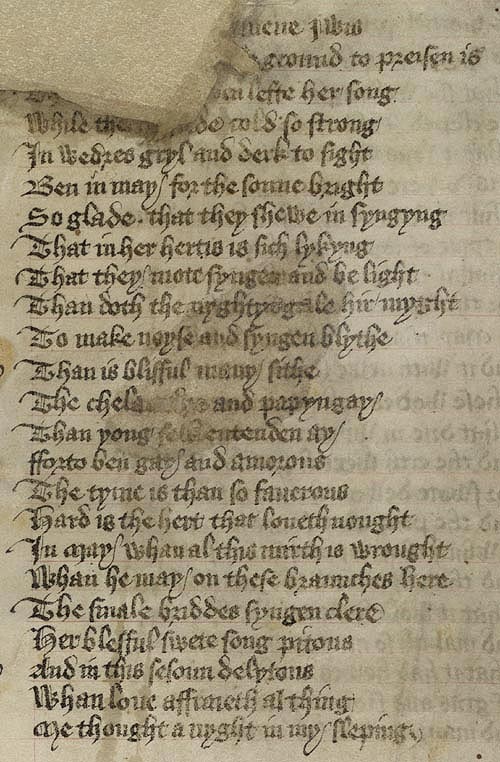 ground to preisen is
lefte her song
While the cold so strong
In wedres gryl and derk to sight
Ben in may for the sonne bright
So glade that they shewe in syngyng
That in her hertis is sich lykyng
That they mote syngen and be light
Than doth the nyghtyngale hir myght
To make noyse and syngen blythe
Than is blisful many sithe
The chelaundre and papyngay
Than yong folk entenden ay
fforto ben gay and amorous
The tyme is than so fauerous
Hard is the hert that loueth nought
In may whan al this mirth is wrought
Whan he may on these braunches here
The smale briddes syngen clere
Her blesful swete song pitous
And in this sesoun delytous
Whan loue affraieth al thing
Me thought a nyght in my sleping